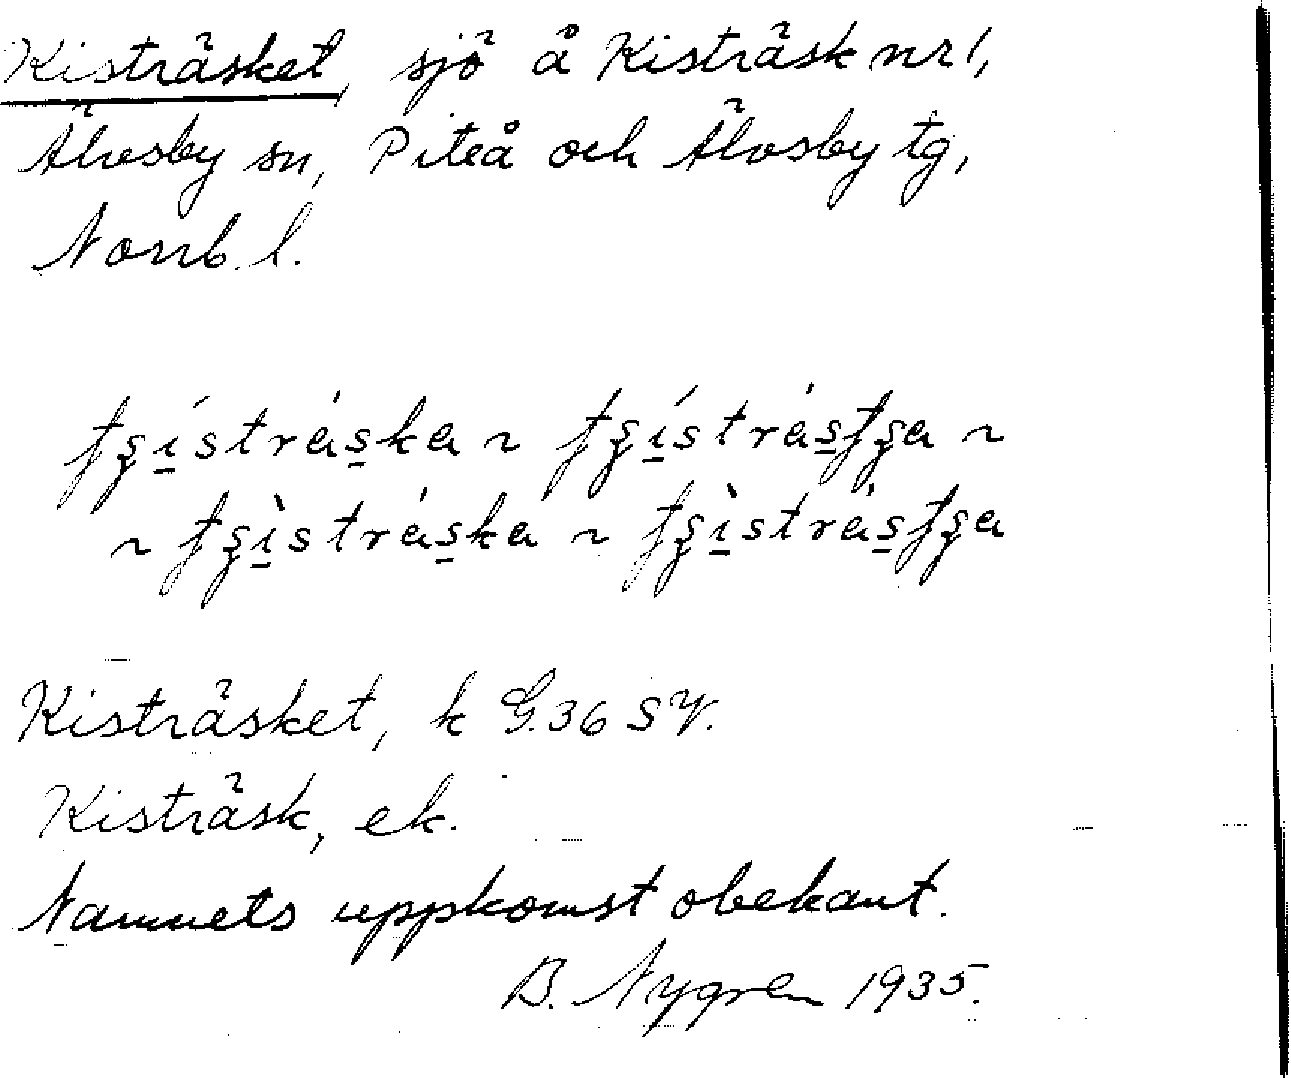 Kisträsket, sjö å Kisträsk nr 1,
Älvsby sn, Piteå och Älvsby tg,
Norrb. l.
Kisträsket, k G.36 SV.
Kisträsk, ek.
Namnets uppkomst obekant.
B. Nygren 1935.